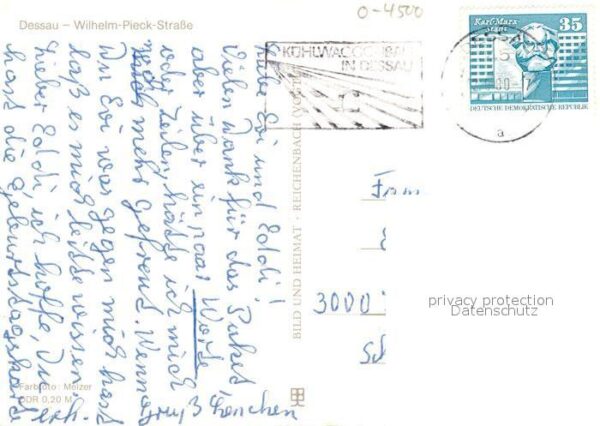 Dessau – Wilhelm-Pieck-Straße
O-4500
Karl-Marx-
stadt
35
DEUTSCHE DEMOKRATISCHE REPUBLIK
KÜHLWAGGONBAU
IN DESSAU
a
Liebe Evi und Eddi!
Vielen Dank für das Paket,
aber über ein paar Worte
oder Zeilen hätte ich mich
noch mehr gefreut. Wenn
Du Evi was gegen mich hast
laß es mich bitte wissen.
Lieber Eddi, ich hoffe, Du
hast die Geburtstagskarte
erh.
Gruß Lenchen
BILD UND HEIMAT · REICHENBACH (VOGTL)
3000
privacy protection
Datenschutz
Farbfoto: Melzer
DDR 0,20 M